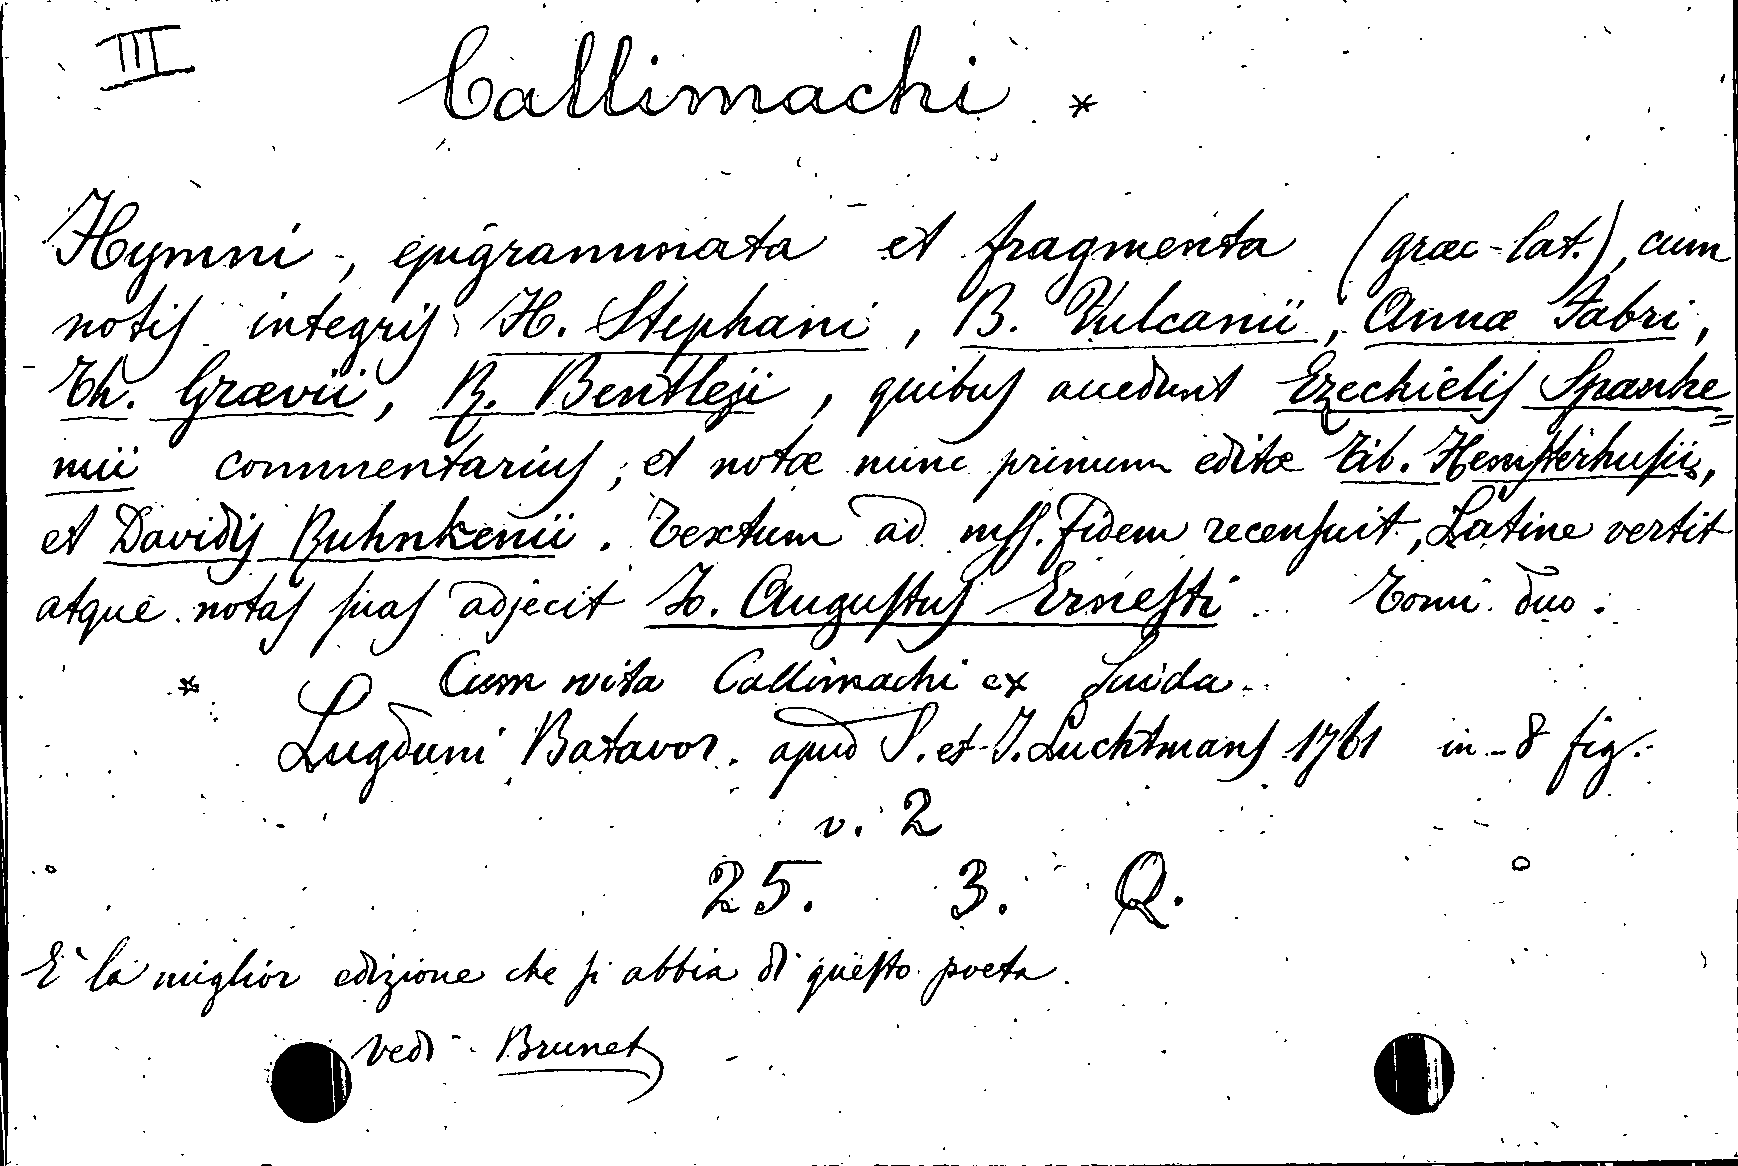 III
Callimachi *
Hymni, epigrammata et fragmenta (græc-lat.), cum
notis integris H. Stephani, B. Vulcanii, Annæ Fabri,
Th. Grævii, R. Bentleji, quibus accedunt Ezechielis Spanhe=
mii commentarius, et notæ nunc primum editæ Tib. Hemsterhusii,
et Davidis Ruhnkenii. Textum ad mss. fidem recensuit, Latine vertit
atque notas suas adjecit Io. Augustus Ernesti. Tomi duo.
* Cum vita Callimachi ex Suida.
Lugduni Batavor. apud S. et J. Luchtmans 1761 in-8 fig.
v. 2
25. 3. Q.
È la miglior edizione che si abbia di questo poeta.
vedi Brunet